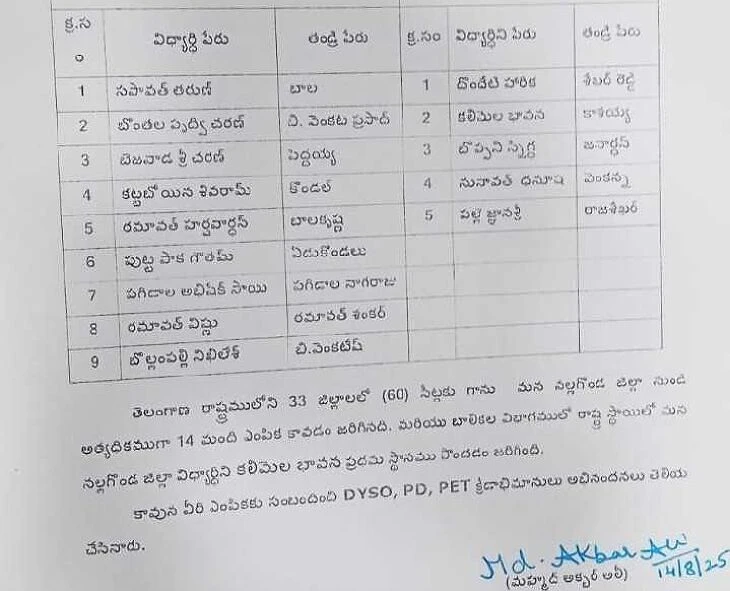 క్ర.స విధ్యార్థి పేరు తండ్రి పేరు క్ర.సం విధ్యార్థిని పేరు తండ్రి పేరు
ం
1 సపావత్ తరుణ్ బాల 1 దొండేటి హారిక శేఖర్ రెడ్డి
2 బొంతల పృద్వి చరణ్ వి. వెంకట ప్రసాద్ 2 కలిమెల భావన కాశయ్య
3 బెజవాడ శ్రీ చరణ్ పెద్దయ్య 3 బొప్పని స్నిగ్ధ జనార్ధన్
4 కట్టబోయిన శివరామ్ కొండల్ 4 నునావత్ ధనూష వెంకన్న
5 రమావత్ హర్షవార్ధన్ బాలకృష్ణ 5 పల్లె జ్ఞానశ్రీ రాజశేఖర్
6 పుట్ట పాక గౌతమ్ ఏడుకొండలు
7 పగిడాల అభిషేక్ సాయి పగిడాల నాగరాజు
8 రమావత్ విష్ణు రమావత్ శంకర్
9 బొల్లంపల్లి నిఖిలేశ్ బి.వెంకటేష్
తెలంగాణ రాష్ట్రములోని 33 జిల్లాలలో (60) సీట్లకు గాను మన నల్లగొండ జిల్లా నుండి
అత్యధికముగా 14 మంది ఎంపిక కావడం జరిగినది. మరియు బాలికల విభాగములో రాష్ట్ర స్థాయిలో మన
నల్లగొండ జిల్లా విధ్యార్థిని కలిమెల భావన ప్రదమ స్థానము పొందడం జరిగింది.
కావున వీరి ఎంపికకు సంబందించి DYSO, PD, PET క్రీడాభిమానులు అభినందనలు తెలియ
చేసినారు.
Md. Akbar Ali
14/8/25
(మహ్మద్ అక్బర్ అలీ)